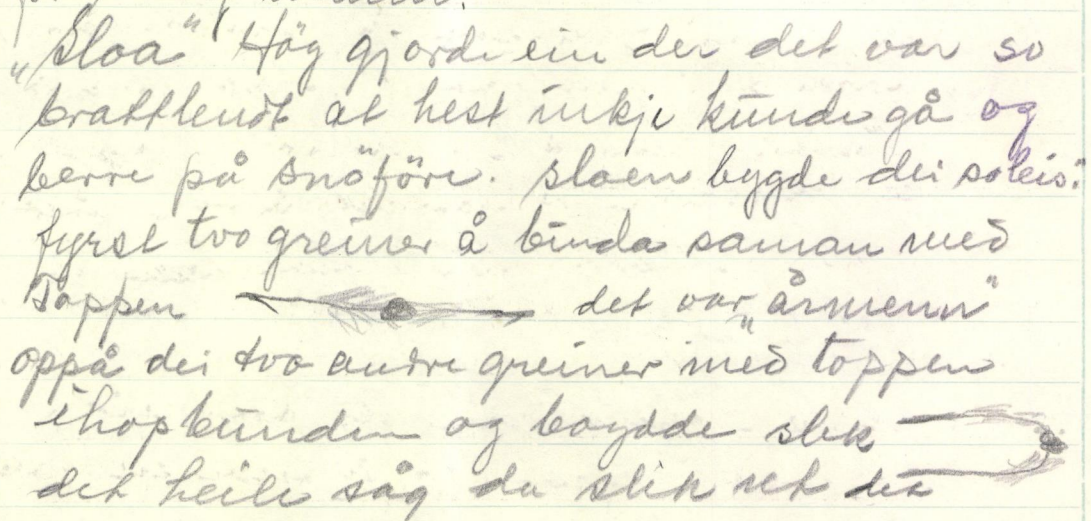 „Sloa" Hög gjorde ein der det var so
brattlendt at hest inkje kunde gå og
berre på snöföre. sloen bygde dei soleis:
fyrst tvo greiner å binda saman med
Toppen det var „ármenn"
oppå dei tvo andre greiner med toppen
ihopbunden og boydde slik
det heile såg du slik ut det